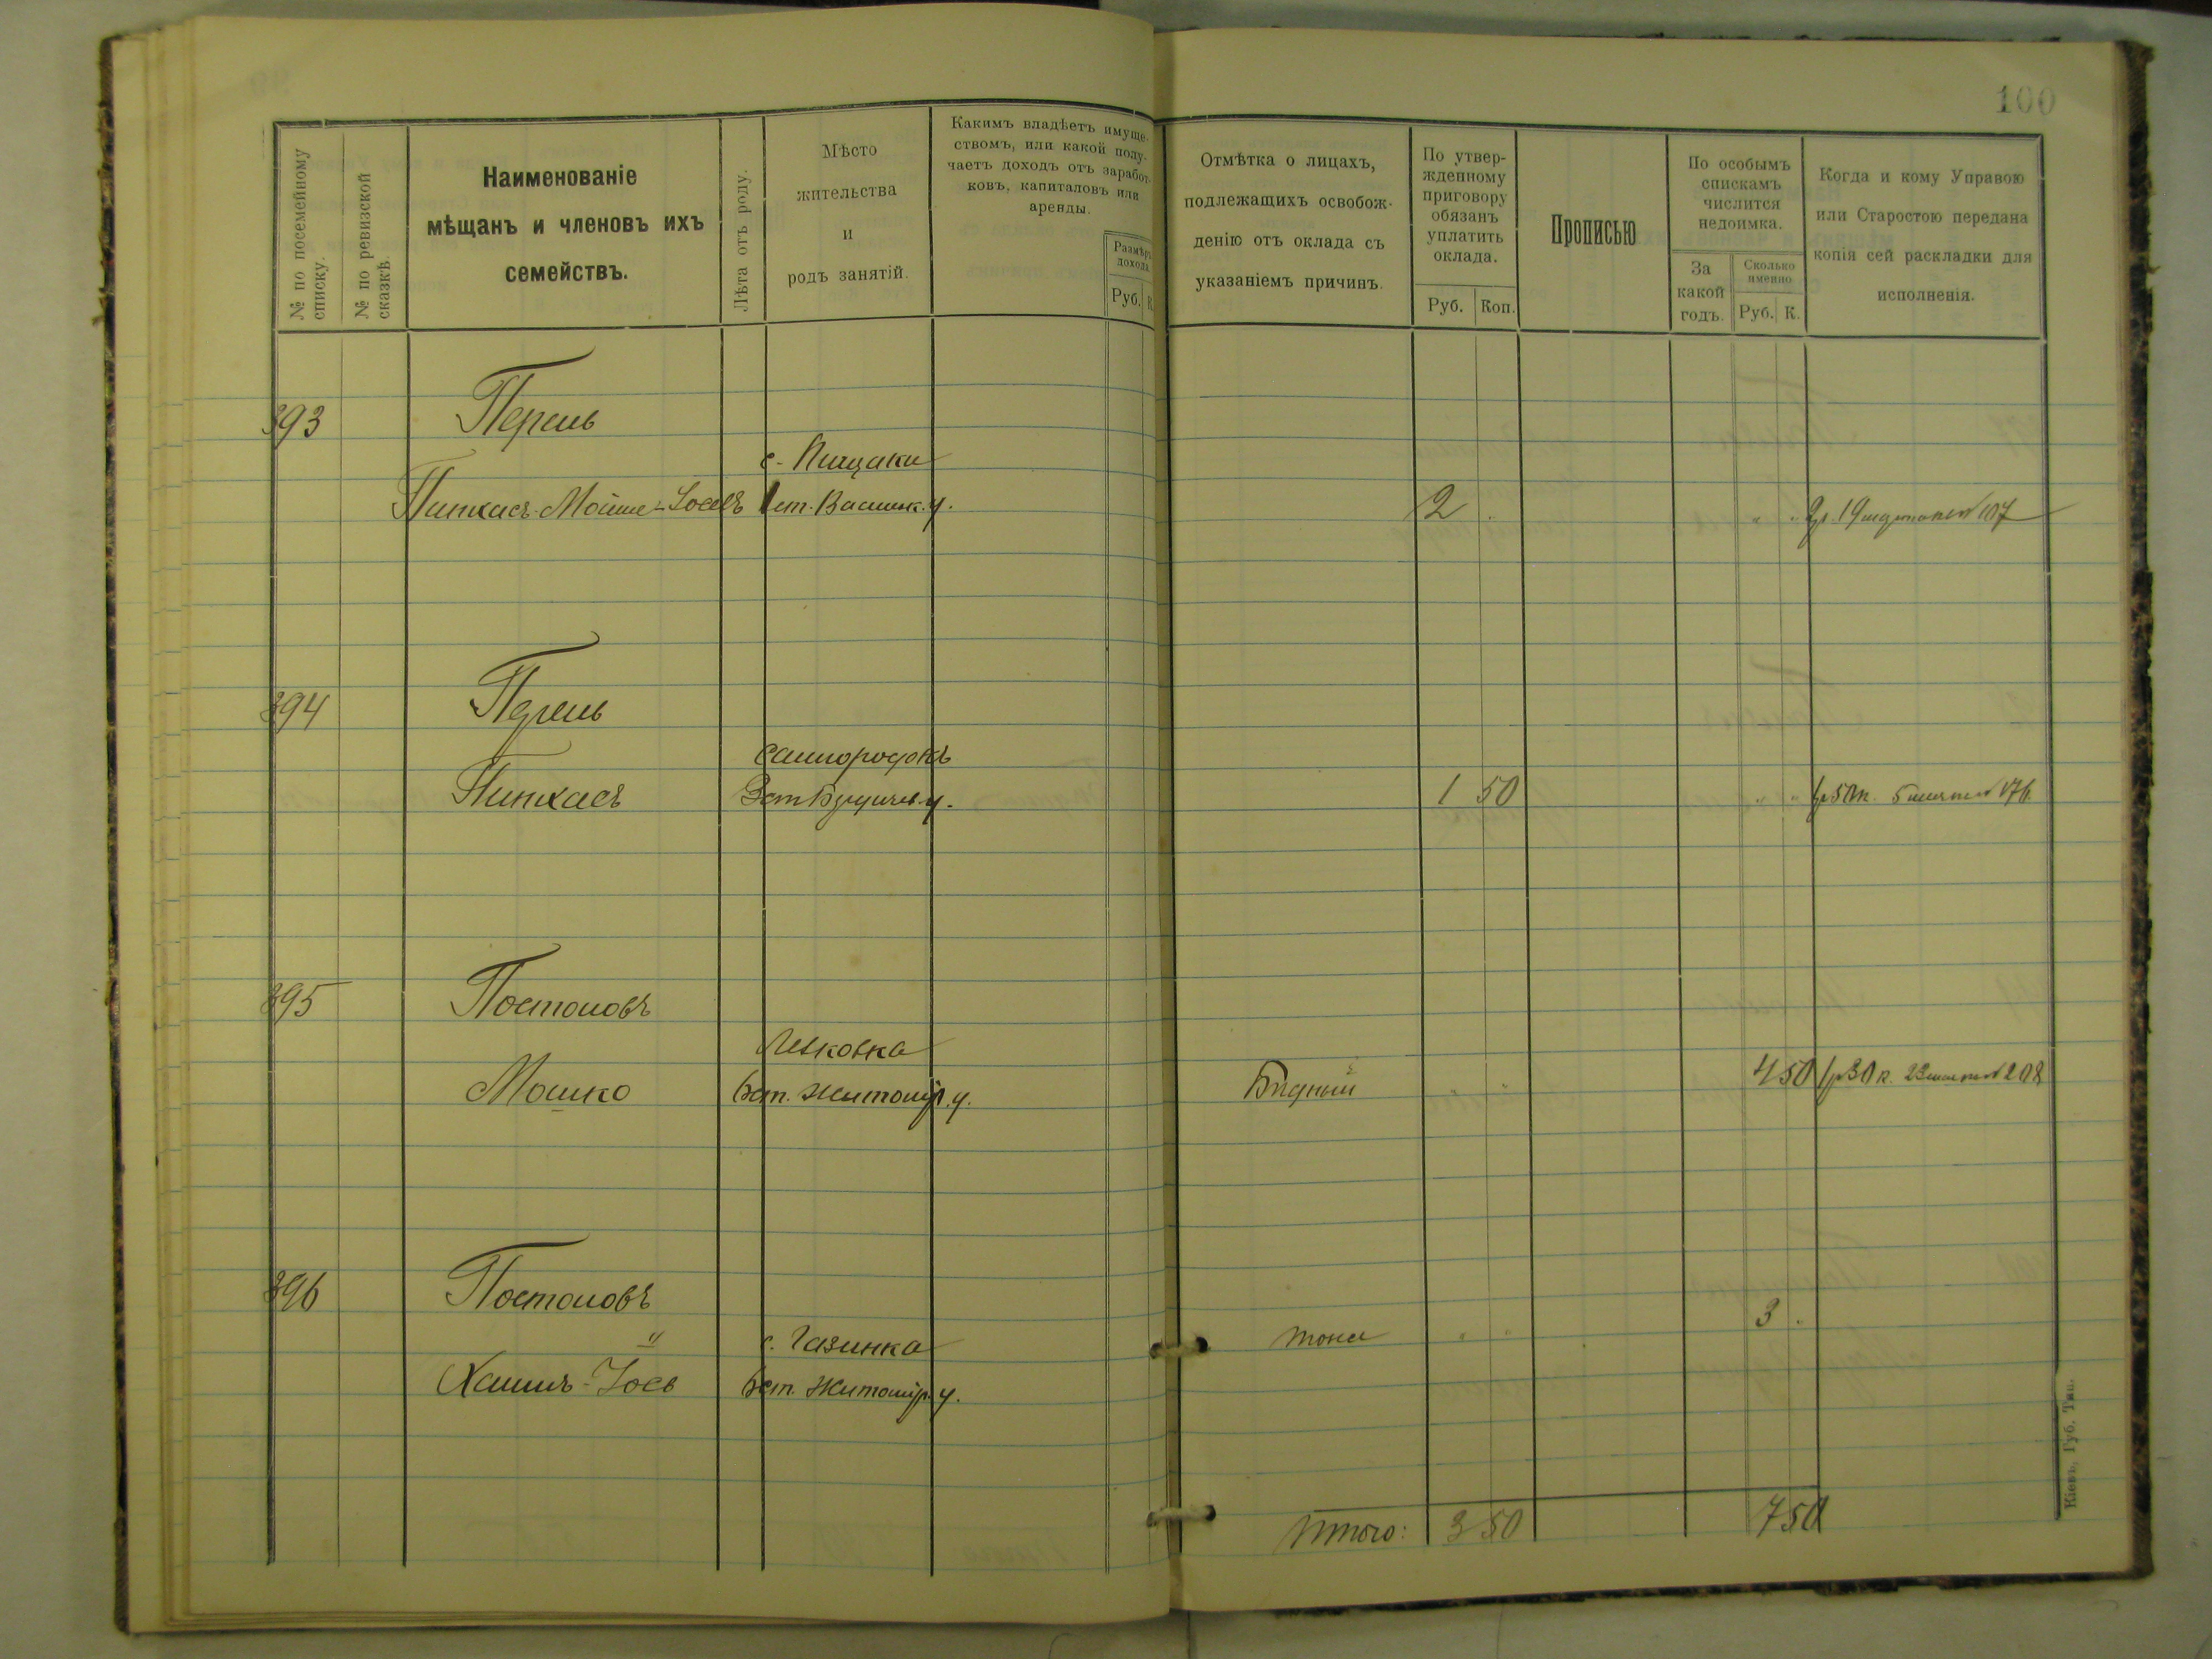 100
№ по посемейному списку.
№ по ревизской сказкѣ.
Наименованіе
мѣщанъ и членовъ ихъ
семействъ.
Лѣта отъ роду.
Мѣсто
жительства
и
родъ занятій.
Какимъ владѣетъ имуще-
ствомъ, или какой полу-
чаетъ доходъ отъ заработ-
ковъ, капиталовъ или
аренды.
Размѣръ
дохода
Руб. К.
Отмѣтка о лицахъ,
подлежащихъ освобож-
денію отъ оклада съ
указаніемъ причинъ.
По утвер-
жденному
приговору
обязанъ
уплатить
оклада.
Руб. Коп.
Прописью
По особымъ
спискамъ
числится
недоимка.
За
какой
годъ.
Сколько
именно
Руб. К.
Когда и кому Управою
или Старостою передана
копія сей раскладки для
исполненія.
393 Перель
с. Пищаки
Пинхасъ-Мойше-Іосевъ 1 ст. Васильк. у. 2 . " " 2 р. 19 107
394 Перель
Самгородокъ
Пинхасъ 3 ст. Бердичев. у. 1 50 " " 1 р 50 к. 5 176
395 Постоловъ
Левковка
Мошко ст. Житомір. у. Бѣдный " " 4 50 1 р 30 к. 23 208
396 Постоловъ
" с. Газинка тоже " " 3 .
Хаимъ-Іось ст. Житомір. у.
Итого: 3 50 7 50
Кіевъ, Губ. Тип.